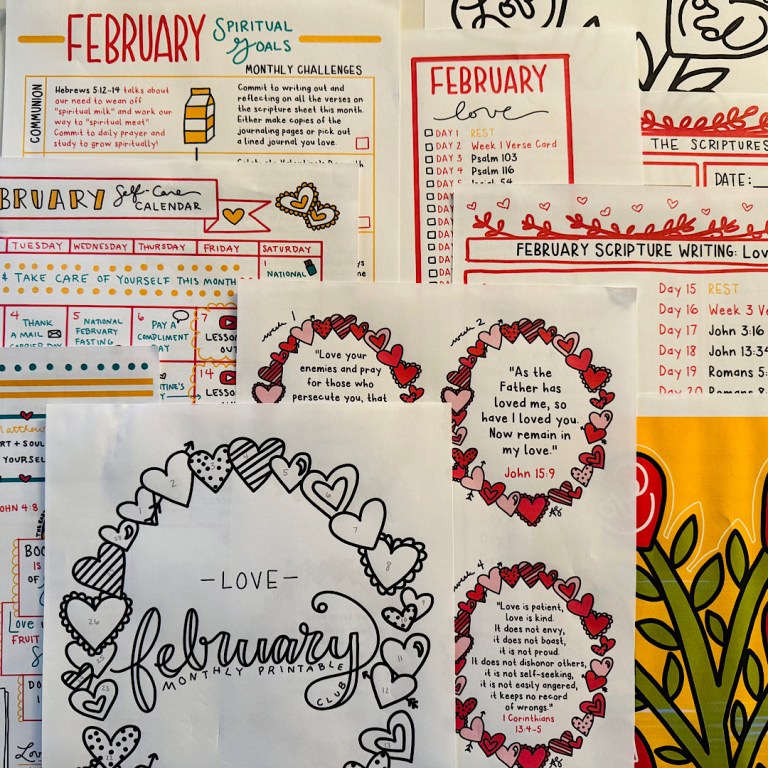 FEBRUARY SPIRITUAL GOALS
MONTHLY CHALLENGES
COMMUNION
Hebrews 5:12-14 talks about
our need to wean off
"spiritual milk" and work our
way to "spiritual meat".
Commit to daily prayer and
study to grow spiritually!
Commit to writing out and
reflecting on all the verses on
the scripture sheet this month.
Either make copies of the
journaling pages or pick out
a lined journal you love.
FEBRUARY
love
DAY 1 REST
DAY 2 Week 1 Verse Card
DAY 3 Psalm 103
DAY 4 Psalm 116
DAY 5
DAY
DAY
DAY
DAY
DAY
DAY
DAY
DAY
THE SCRIPTURES
DATE:
BRUARY Self-Care
CALENDAR
TUESDAY WEDNESDAY THURSDAY FRIDAY SATURDAY
& TAKE CARE OF YOURSELF THIS MONTH
1
NATIONAL
4 THANK
A MAIL
5 NATIONAL
FEBRUARY
FASTING
6 PAY A
COMPLIMENT
7
LESSO
OUT
14
LESSO
FEBRUARY SCRIPTURE WRITING: Lov
Day 15 REST
Day 16 Week 3 Ve
Day 17 John 3:16
Day 18 John 13:34
Day 19 Romans 5:
Day 20 Romans 8
week 1
"Love your
enemies and pray
for those who
persecute you, that
week 2
"As the
Father has
loved me, so
have I loved you.
Now remain in
my love."
John 15:9
week 4
"Love is patient,
love is kind.
It does not envy,
it does not boast,
it is not proud.
It does not dishonor others,
it is not self-seeking,
it is not easily angered,
it keeps no record
of wrongs."
1 Corinthians
13:4-5
RT + SOUL
YOURSELF
OHN 4:8
BOO
IS
OF
Love is
FRUIT
DO
-LOVE-
february
MONTHLY PRINTABLE
CLUB
1
2
3
5
6
7
8
11
12
26